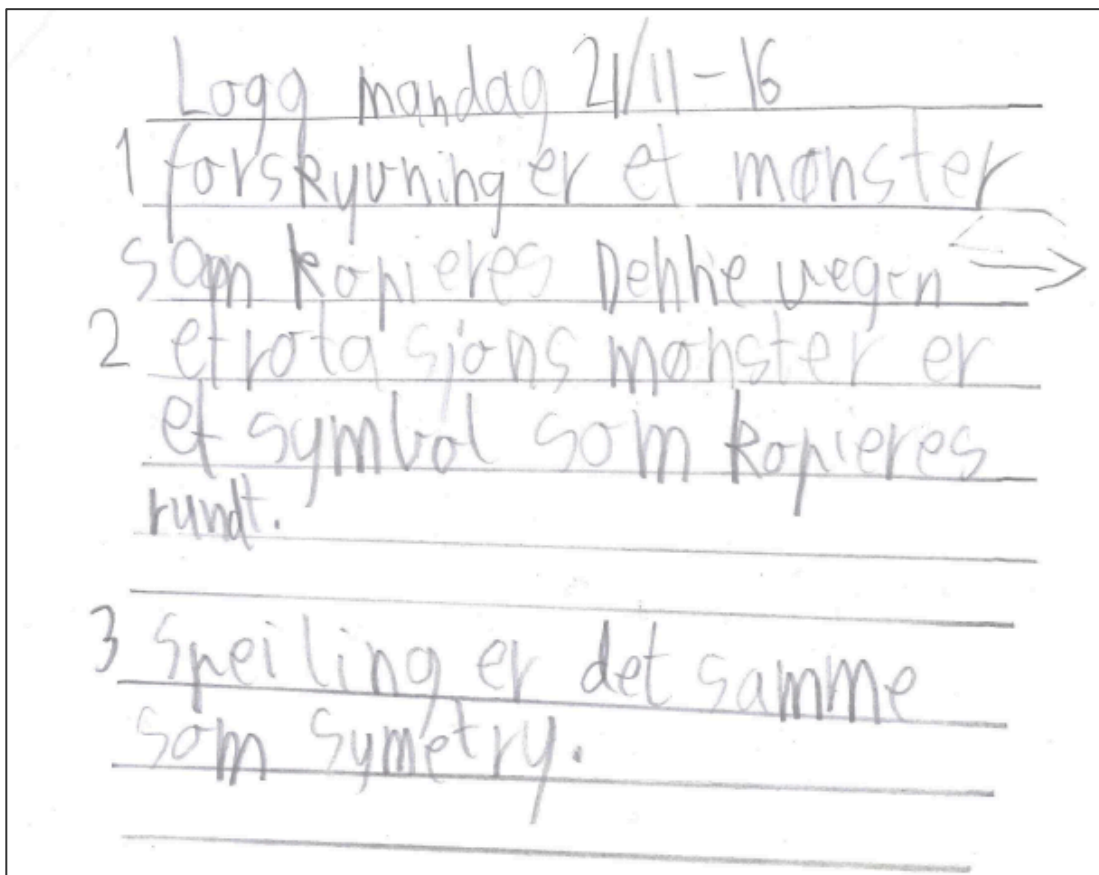 Logg mandag 21/11-16
1 forskyvning er et mønster
som kopieres Denne vegen →
2 et rotasjons mønster er
et symbol som kopieres
rundt.
3 Speiling er det samme
som symetry.